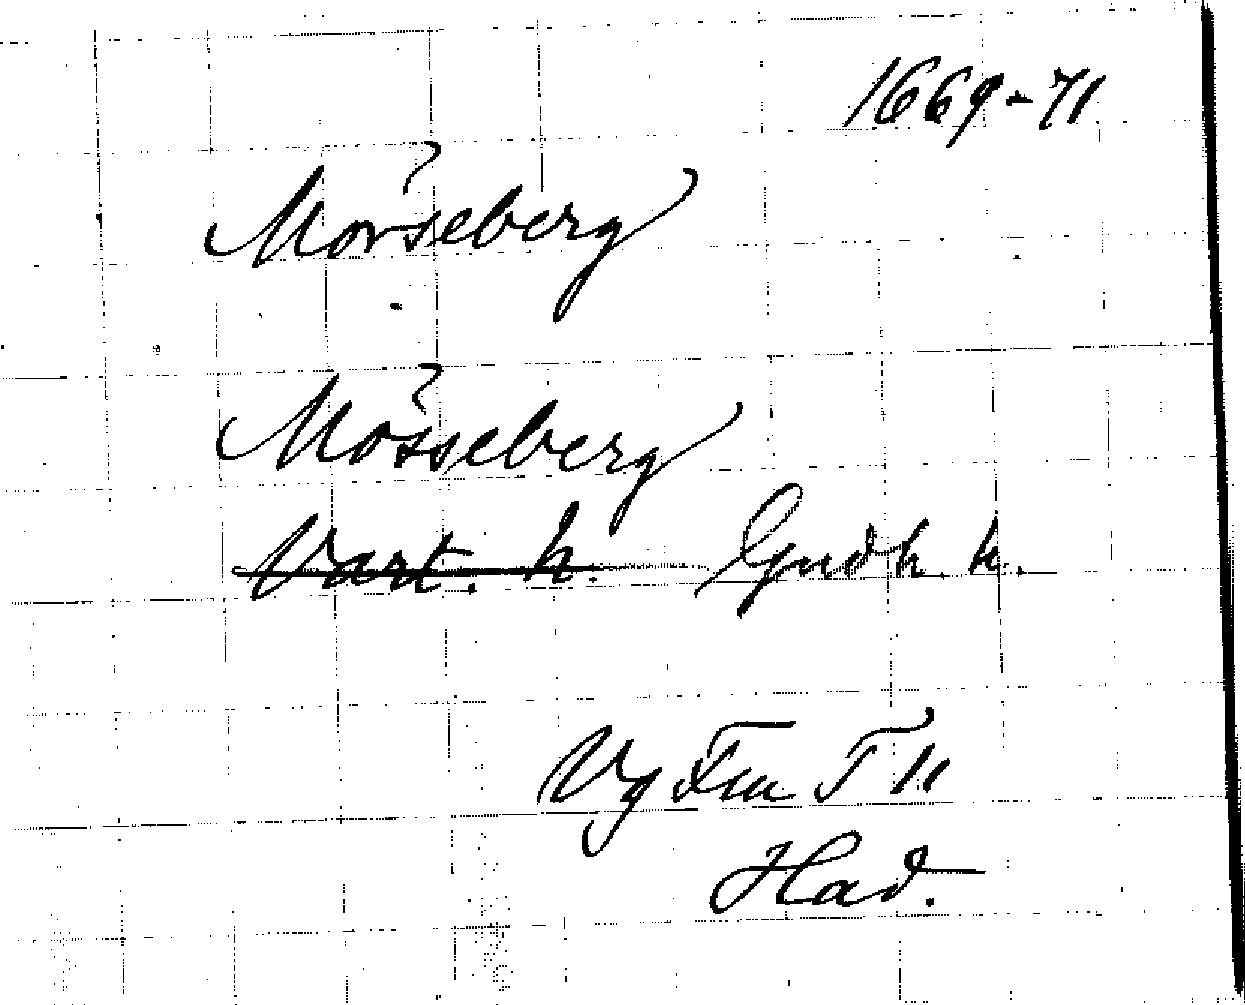 1669-71
Mörseberg
Mösseberg
Vart. h. Gudh. h.
Vg Fm T 11
Had.